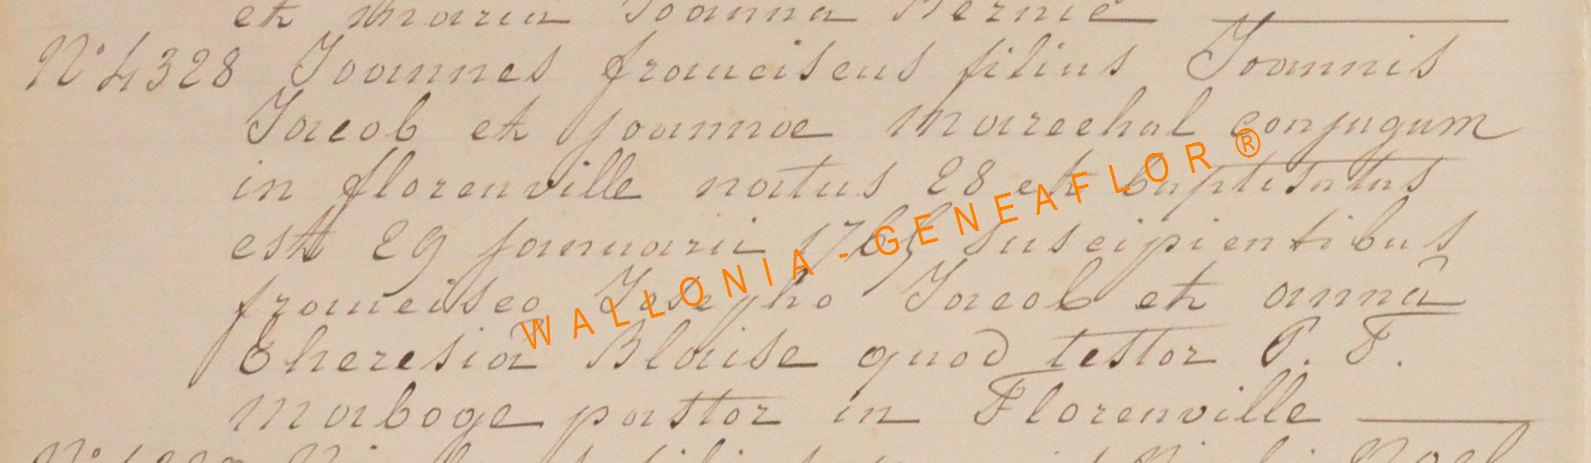 et maria Joanna Bernie
N° 4328 Joannes franciscus filius Joannis
Jacob et joannae marechal conjugum
in florenville natus 28 et baptisatus
est 29 januarii suscipientibus
francisco Josepho Jacob et annâ
theresiâ Blaise quod testor P. F.
maboge pastor in Florenville
WALLONIA - GENEAFLOR ®